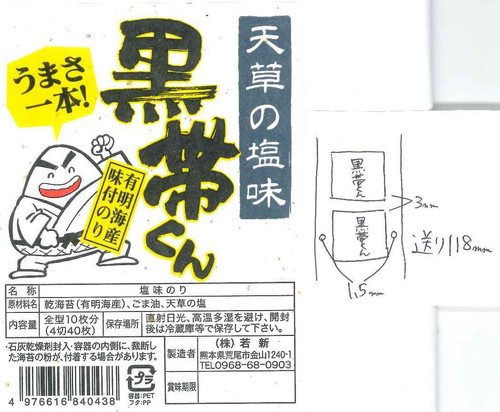 天草の塩味
黒帯くん
うまさ
一本!
有明海産
味付のり
名称 塩味のり
原材料名 乾海苔(有明海産)、ごま油、天草の塩
内容量 全型10枚分
(4切40枚)
保存場所 直射日光、高温多湿を避け、開封
後は冷蔵庫等で保存して下さい。
・石灰乾燥剤封入・容器の内側に、裁断し
た海苔の粉が、付着する場合があります。
製造者 (株)若新
熊本県荒尾市金山1240-1
TEL0968-68-0903
賞味期限
プラ
容器:PET
フタ:PP
4 976616 840438
黒帯くん
黒帯くん
3mm
送り118mm
1.5mm